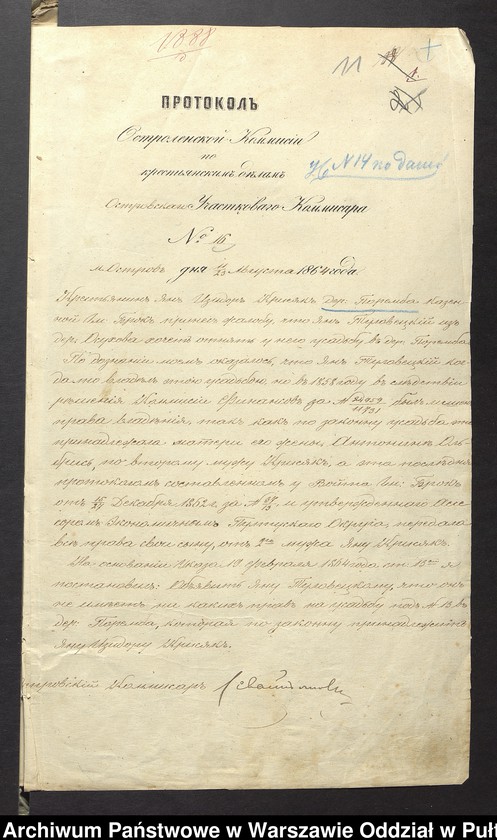 18.88
11
ПРОТОКОЛЪ
Остроленской Коммисіи
по
крестьянскимъ дѣламъ
№ 14 по дашѣ
Островскаго Участковаго Коммисара
№ 16
м. Островъ дня 11/23 Августа 1864 года
Крестьянинъ Янъ Изидоръ Крисякъ дер. Поремба казен
ной гм. Брокъ принесъ жалобу, что Янъ Туловецкій изъ
дер. хочетъ отнять у него усадьбу въ дер. Поремба
По дознаніи моемъ оказалось, что Янъ Туловецкій ког
да то владѣлъ этою усадьбою, но въ 1858 году въ слѣдствіи
рѣшенія Коммисіи Финансовъ за № былъ лишенъ
права владѣнія, такъ какъ по закону усадьба та
принадлежала матери его жены, Антонинѣ
по второму мужу Крисякъ, а эта послѣдняя
протоколомъ составленнымъ у Войта гм. Брокъ
отъ Декабря 1862 г. за № и утвержденнаго Асес
соромъ Экономичнымъ Пултускаго Округа, передала
всѣ права свои сыну, отъ 2го мужа Яну Крисякъ.
На основаніи Указа 19 Февраля 1864 года ст 13 я
постановилъ: Объявить Яну Туловецкому, что онъ
не имѣетъ ни какихъ правъ на усадьбу подъ № 13 въ
дер. Поремба, которая по закону принадлежитъ
Яну Изидору Крисякъ.
тровскій Коммисаръ
Archiwum Państwowe w Warszawie Oddział w Puł